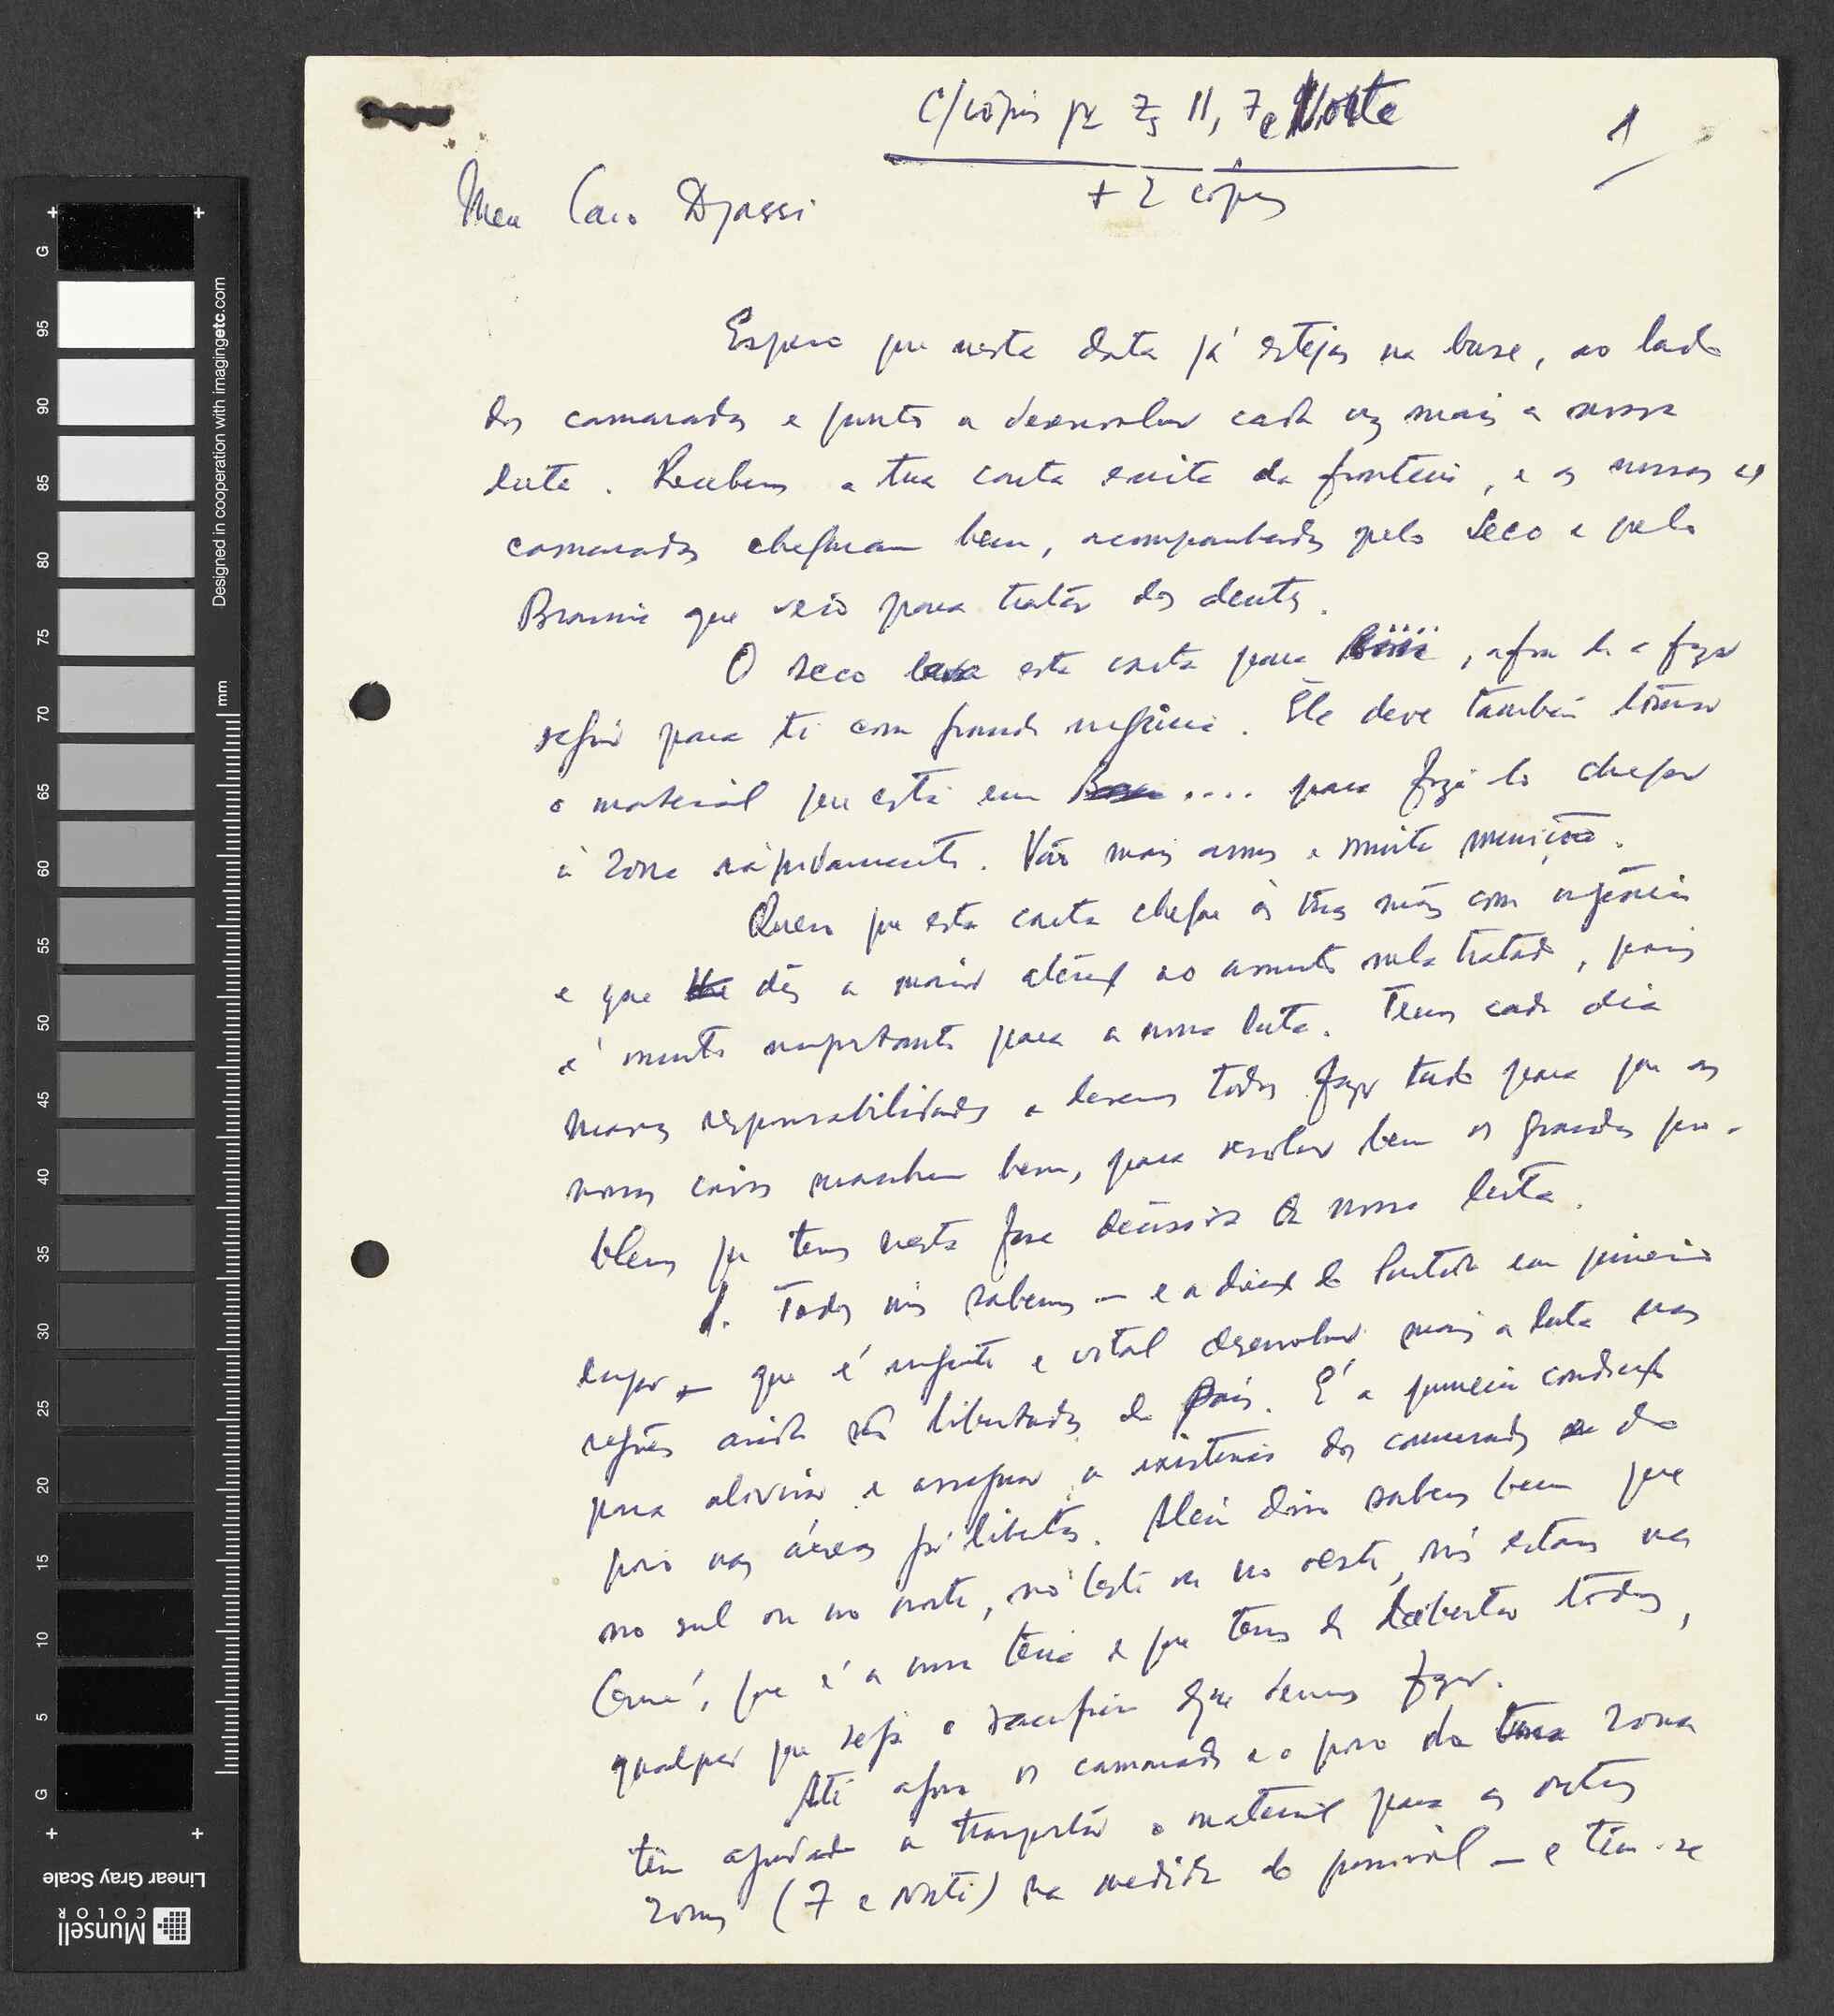 C/cópia pª Zs 11, 7 e Norte
+ 2 cópias
1
Meu Caro Djassi
Espero que nesta data já estejas na base, ao lado
dos camaradas e pronto a desenvolver cada vez mais a nossa
luta. Recebemos a tua carta escrita da fronteira, e os nossos
camaradas chegaram bem, acompanhados pelo Seco e pelo
que veio para tratar dos dentes.
O Seco leva esta carta para , afim de a fazer
seguir para ti com grande urgência. Ele deve também tomar
o material que está em .... para fazê-lo chegar
à zona ràpidamente. Vão mais armas e muita munição.
Quero que esta carta chegue às tuas mãos com urgência
e que dês a maior atenção ao assunto nela tratado, pois
é muito importante para a nossa luta. Temos cada dia
mais responsabilidades e devemos todos fazer tudo para que as
nossas coisas marchem bem, para resolver bem os grandes pro-
blemas que temos nesta fase decisiva da nossa luta.
1. Todos nós sabemos — e a direcção do Partido em primeiro
lugar — que é urgente e vital desenvolver mais a luta nas
regiões ainda não libertadas do país. É a primeira condição
para aliviar e assegurar a existência dos camaradas e do
povo nas áreas já libertadas. Além disso sabemos bem que
no sul ou no norte, no leste ou no oeste, nós estamos na
Guiné, que é a nossa terra e que temos de libertar toda,
qualquer que seja o sacrifício que devemos fazer.
Até agora os camaradas e o povo da tua zona
têm ajudado a transportar o material para as outras
zonas (7 e Norte) na medida do possível — e têm-se